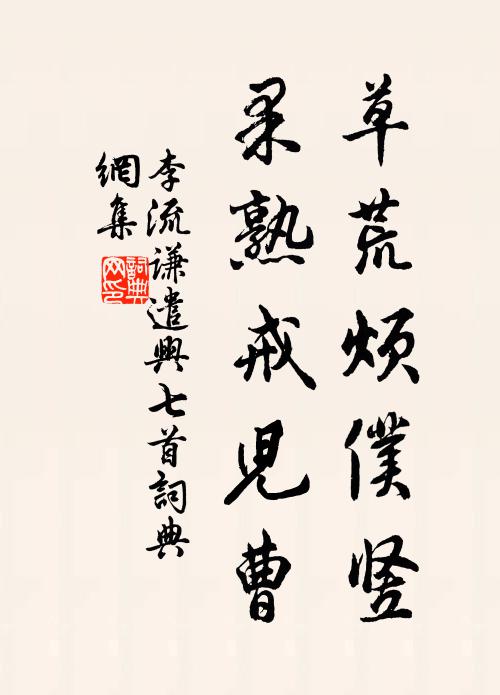 草荒煩僕豎
果熟戒兒曹
李流謙遣興七首詞典
網集
詞典網印